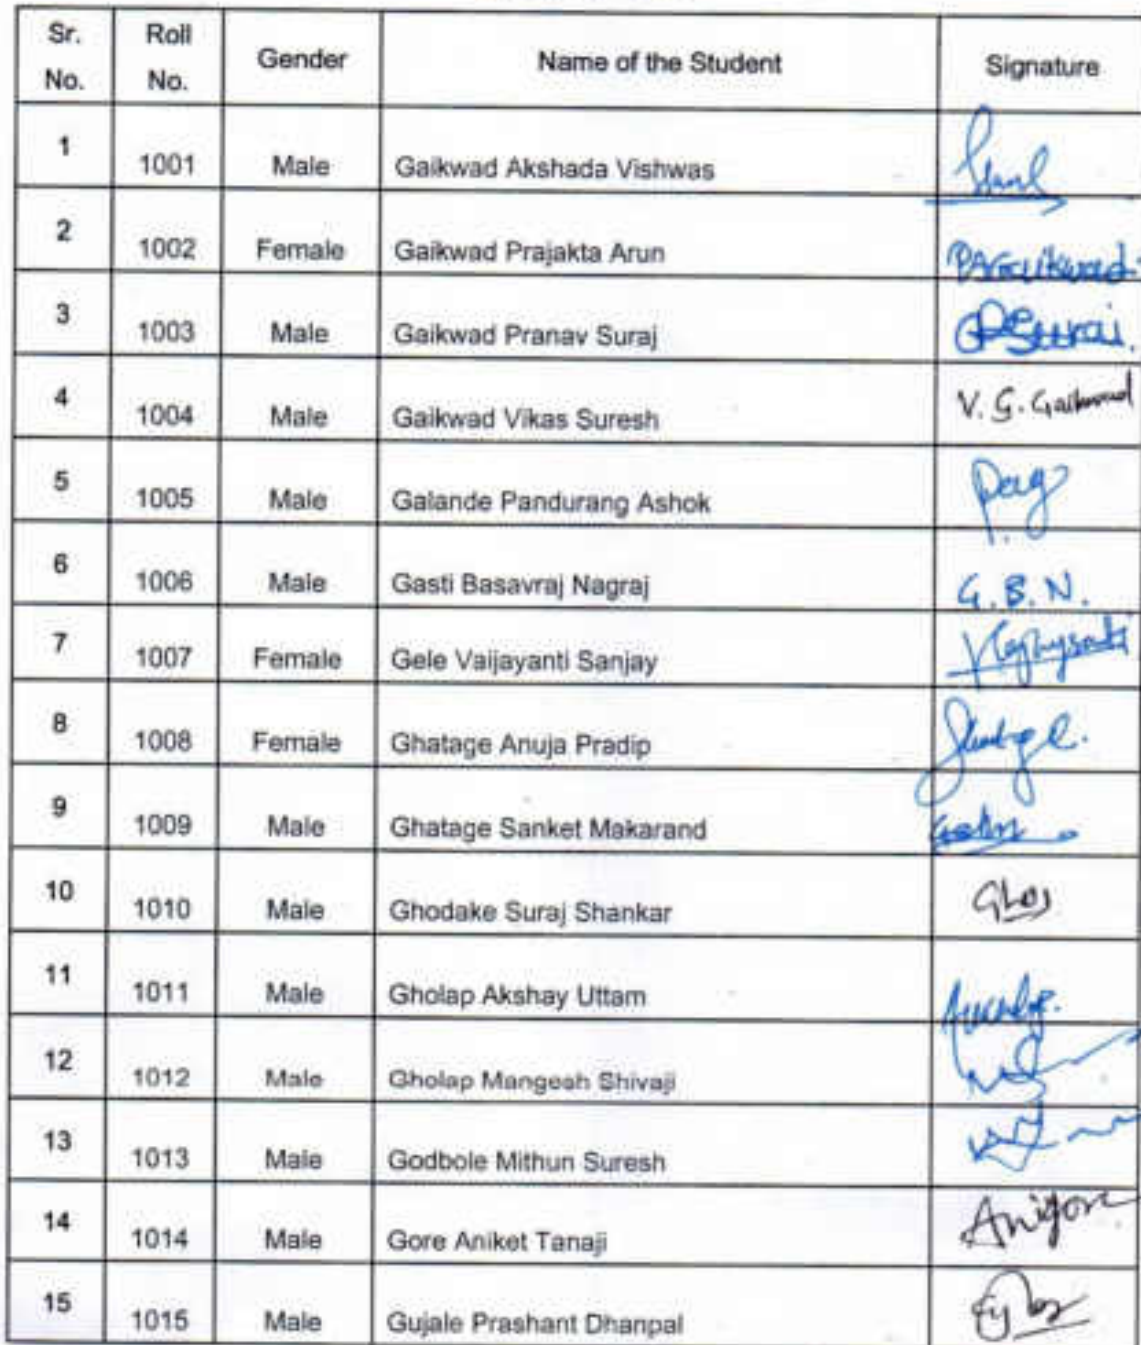 Sr. No. Roll No. Gender Name of the Student Signature
1 1001 Male Gaikwad Akshada Vishwas
2 1002 Female Gaikwad Prajakta Arun PAGaikwad
3 1003 Male Gaikwad Pranav Suraj
4 1004 Male Gaikwad Vikas Suresh V. S. Gaikwad
5 1005 Male Galande Pandurang Ashok Pag
6 1006 Male Gasti Basavraj Nagraj G. B. N.
7 1007 Female Gele Vaijayanti Sanjay
8 1008 Female Ghatage Anuja Pradip
9 1009 Male Ghatage Sanket Makarand
10 1010 Male Ghodake Suraj Shankar
11 1011 Male Gholap Akshay Uttam
12 1012 Male Gholap Mangesh Shivaji
13 1013 Male Godbole Mithun Suresh
14 1014 Male Gore Aniket Tanaji Anigore
15 1015 Male Gujale Prashant Dhanpal